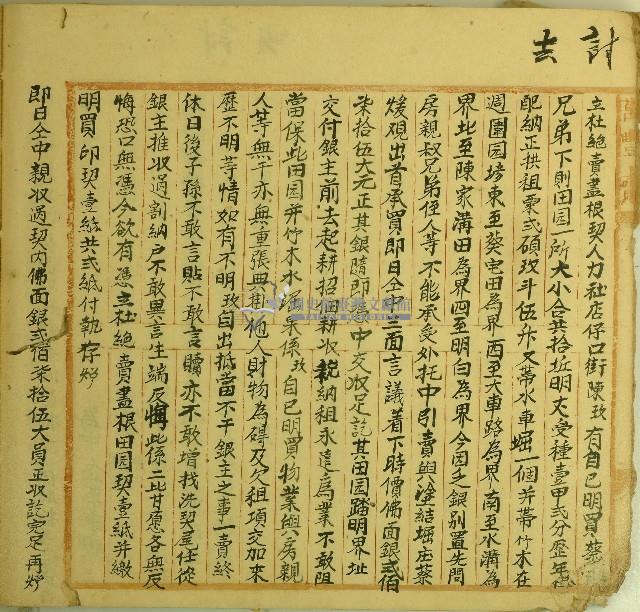 討
去
立杜絕賣盡根契人力社店仔口街陳玫有自己明買蔡
兄弟下則田园一所大小合共拾坵明丈受種壹甲弍分歷年
配納正拱租粟弍碩玫斗伍升又帶水車堀一個并帶竹木在
週圍园塝東至蔡宅田為界西至大車路為界南至水溝為
界北至陳家溝田為界四至明白為界今因乏銀別置先問
房親叔兄弟侄人等不能承受外托中引賣與結堀庄蔡
煖觀出首承買即日仝中三面言議著下時價佛面銀弍佰
柒拾伍大元正其銀隨即仝中交收足訖其田园踏明界址
交付銀主前去起耕招耕收稅納租永遠為業不敢阻
當保此田园并竹木水堀果係玫自己明買物業與房親
人等無干亦無重張典掛他人財物為碍及欠租項交加來
歷不明等情如有不明玫自出抵當不干銀主之事一賣終
休日後子孫不敢言貼不敢言贖亦不敢增找洗契尾任從
銀主推收過割納戶不敢異言生端反悔此係二比甘愿各無反
悔恐口無憑今欲有憑立杜絕賣盡根田园契壹紙并繳
明買印契壹紙共弍紙付執存炤
即日仝中親收過契內佛面銀弍佰柒拾伍大員正收訖完足再炤